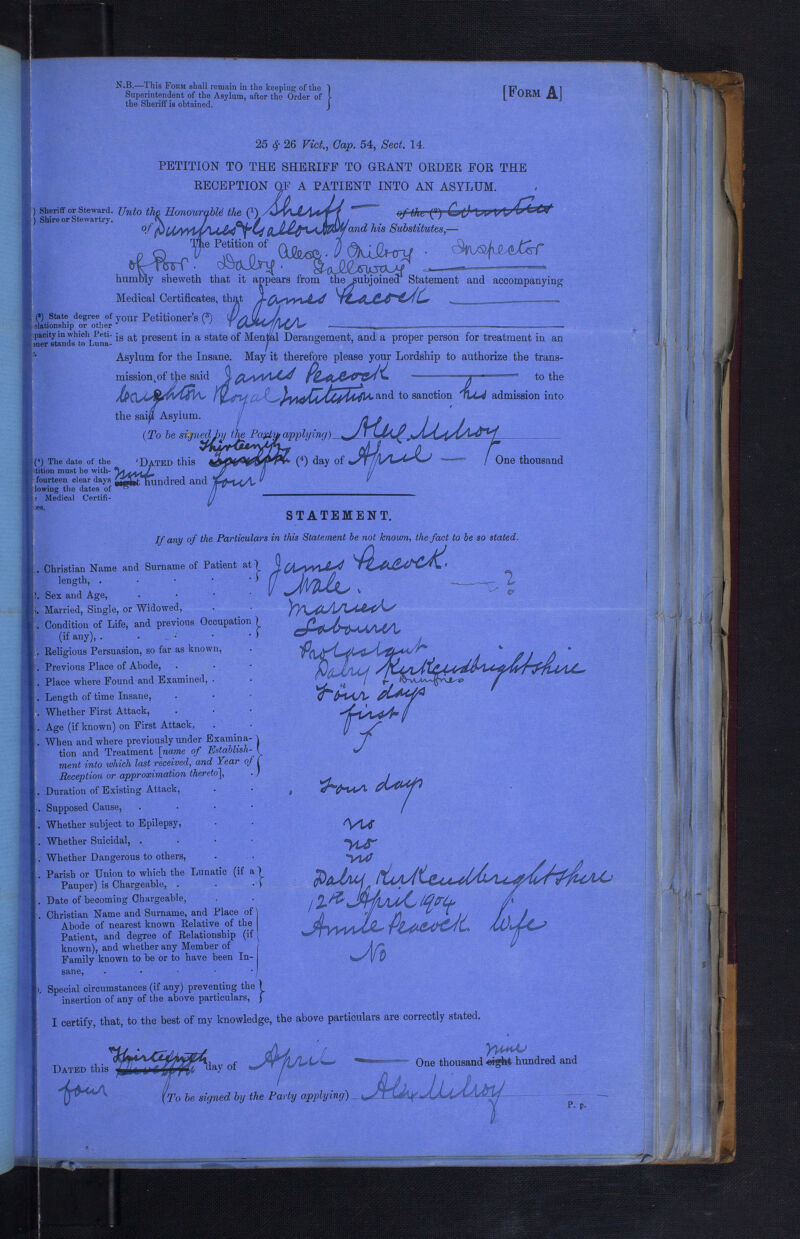 N.B.—This Form shall remain in the keeping of the
Superintendent of the Asylum, after the Order of
the Sheriff is obtained.
[Form A]
25 & 26 Vict., Cap. 54, Sect. 14.
PETITION TO THE SHERIFF TO GRANT ORDER FOR THE
RECEPTION OF A PATIENT INTO AN ASYLUM.
) Sheriff or Steward.
) Shire or Stewartry.
Unto the Honourable the (¹) Sheriff — of the (²) Counties
of Dumfries & Galloway and his Substitutes,—
The Petition of Alexr. Milroy. Inspector
of Poor. Dalry. Galloway
humbly sheweth that it appears from the subjoined Statement and accompanying
Medical Certificates, that James Peacock
(³) State degree of
elationship or other
pacity in which Peti-
ner stands to Luna-
your Petitioner's (³) Pauper
is at present in a state of Mental Derangement, and a proper person for treatment in an
Asylum for the Insane. May it therefore please your Lordship to authorize the trans-
mission of the said James Peacock to the
Crichton Royal Institution and to sanction his admission into
the said Asylum.
(To be signed by the Party applying) Alex Milroy
Thirteenth
(⁴) The date of the
tition must be with-
fourteen clear days
lowing the dates of
Medical Certifi-
es.
DATED this (⁴) day of April — One thousand
Nine
eight hundred and four
STATEMENT.
If any of the Particulars in this Statement be not known, the fact to be so stated.
. Christian Name and Surname of Patient at length, . James Peacock.
. Sex and Age, Male. — ?
. Married, Single, or Widowed, Married
. Condition of Life, and previous Occupation (if any), . Labourer
. Religious Persuasion, so far as known, Protestant
. Previous Place of Abode, Dalry Kirkcudbrightshire
. Place where Found and Examined, . Dumfries
. Length of time Insane, Four days
. Whether First Attack, first
. Age (if known) on First Attack,
. When and where previously under Examina-
tion and Treatment [name of Establish-
ment into which last received, and Year of
Reception or approximation thereto],
. Duration of Existing Attack, Four days
. Supposed Cause,
. Whether subject to Epilepsy, no
. Whether Suicidal, . no
. Whether Dangerous to others, no
. Parish or Union to which the Lunatic (if a
Pauper) is Chargeable, . Dalry Kirkcudbrightshire
. Date of becoming Chargeable, 12th April 1904
. Christian Name and Surname, and Place of
Abode of nearest known Relative of the
Patient, and degree of Relationship (if
known), and whether any Member of
Family known to be or to have been In-
sane,
Annie Peacock. Wife
No
. Special circumstances (if any) preventing the
insertion of any of the above particulars,
I certify, that, to the best of my knowledge, the above particulars are correctly stated.
Thirteenth nine
DATED this Twelfth day of April One thousand eight hundred and
four (To be signed by the Party applying) Alex Milroy
P. p.